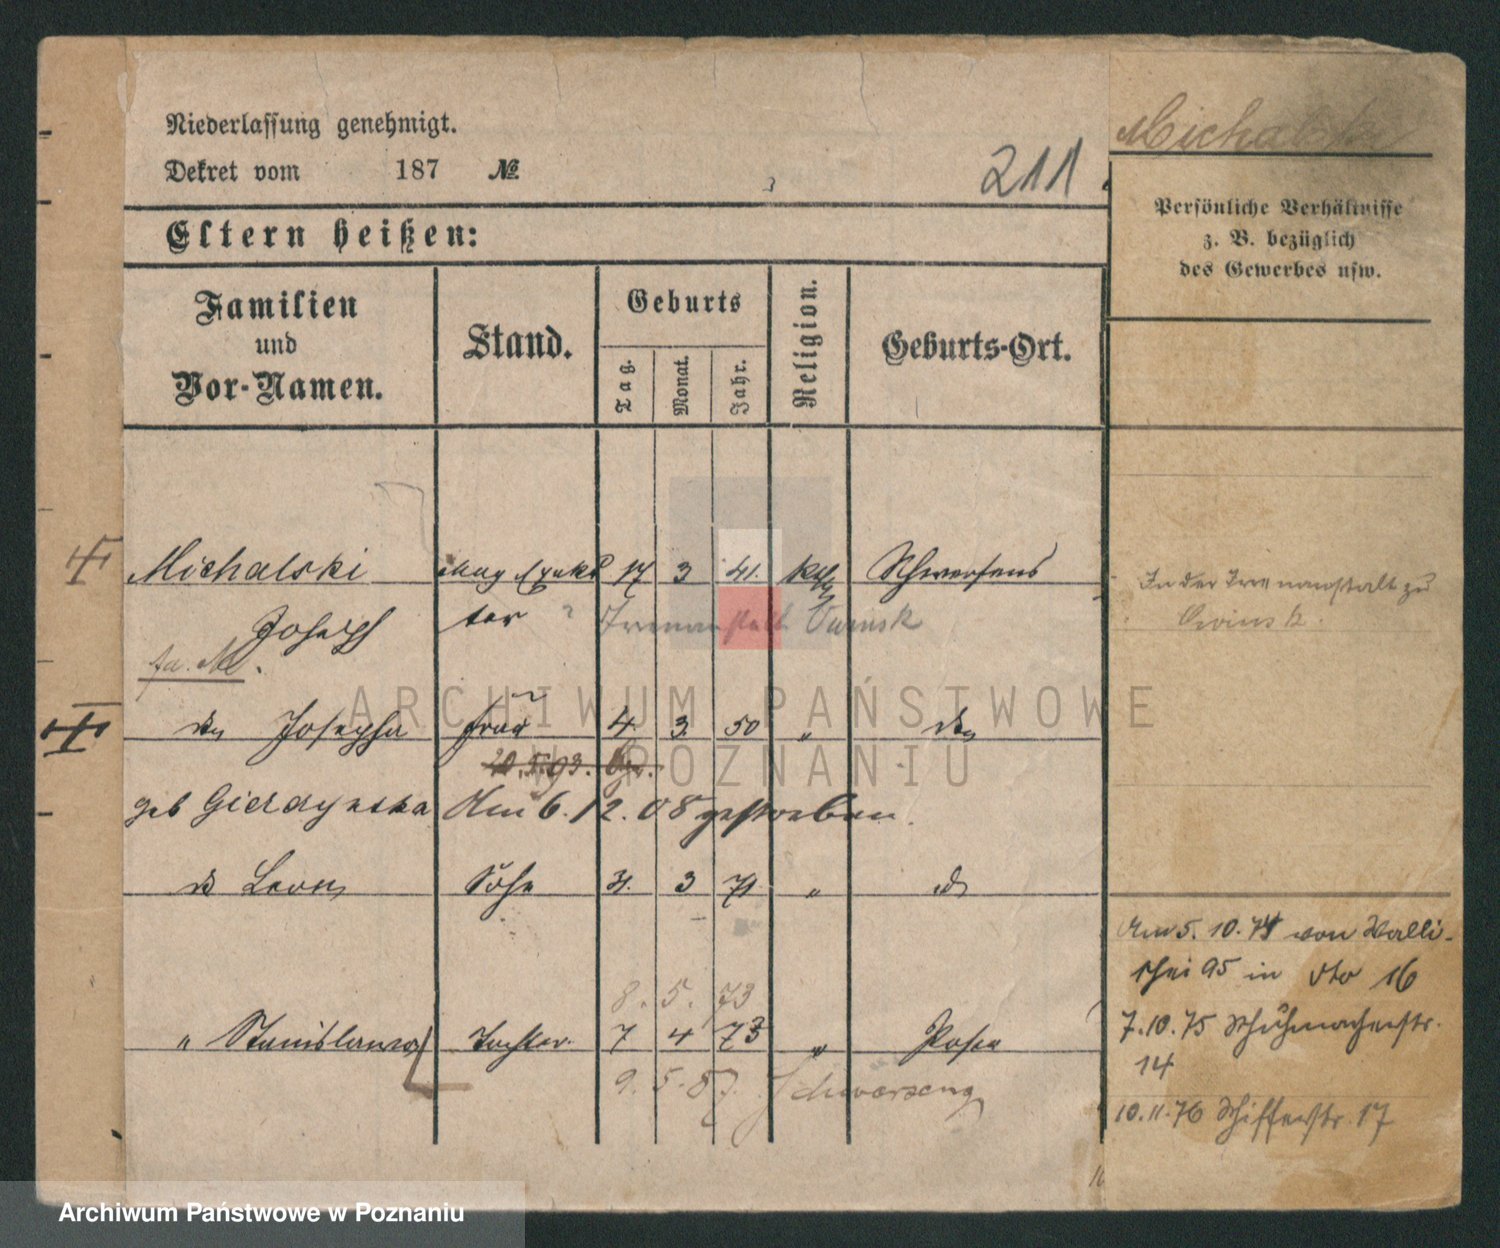 Niederlassung genehmigt.
Dekret vom 187 №
211
Eltern heißen:
Familien und Vor-Namen.
Stand.
Geburts
Tag.
Monat.
Jahr.
Religion.
Geburts-Ort.
Michalski 17 3 41. kth Schwersens
Joseph ter Irrenanstalt Owinsk
fr. M.
do Josepha Frau 4. 3. 50 " do
20.5.93.
geb Am 6.12.08 gestorben.
do Leon Sohn 31. 3 71 " do
8. 5. 73
" Stanislawa Tochter 7 4 73 " Posen
9. 5. 87. Schwersenz
Michalski
Persönliche Verhältnisse
z. B. bezüglich
des Gewerbes usw.
In der Irrenanstalt zu
Owinsk.
Am 5. 10. 74 von Walli-
schei 95 in dto 16
7.10.75 Schuhmacherstr.
14
10.11.76 Schifferstr. 17
ARCHIWUM PAŃSTWOWE
W POZNANIU
Archiwum Państwowe w Poznaniu